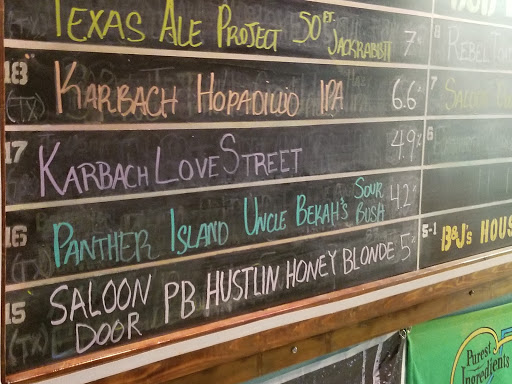 TEXAS ALE PROJECT 50 FT. JACKRABBIT 7
18 (TX) KARBACH HOPADILLO IPA 6.6%
17 KARBACH LOVE STREET 4.9%
16 (TX) PANTHER ISLAND UNCLE BEKAH'S SOUR BUSH 4.2
15 (TX) SALOON DOOR PB HUSTLIN HONEY BLONDE 5%
8 REBEL
7
6
5-1 B&J's HOUS
Purest
Ingredients